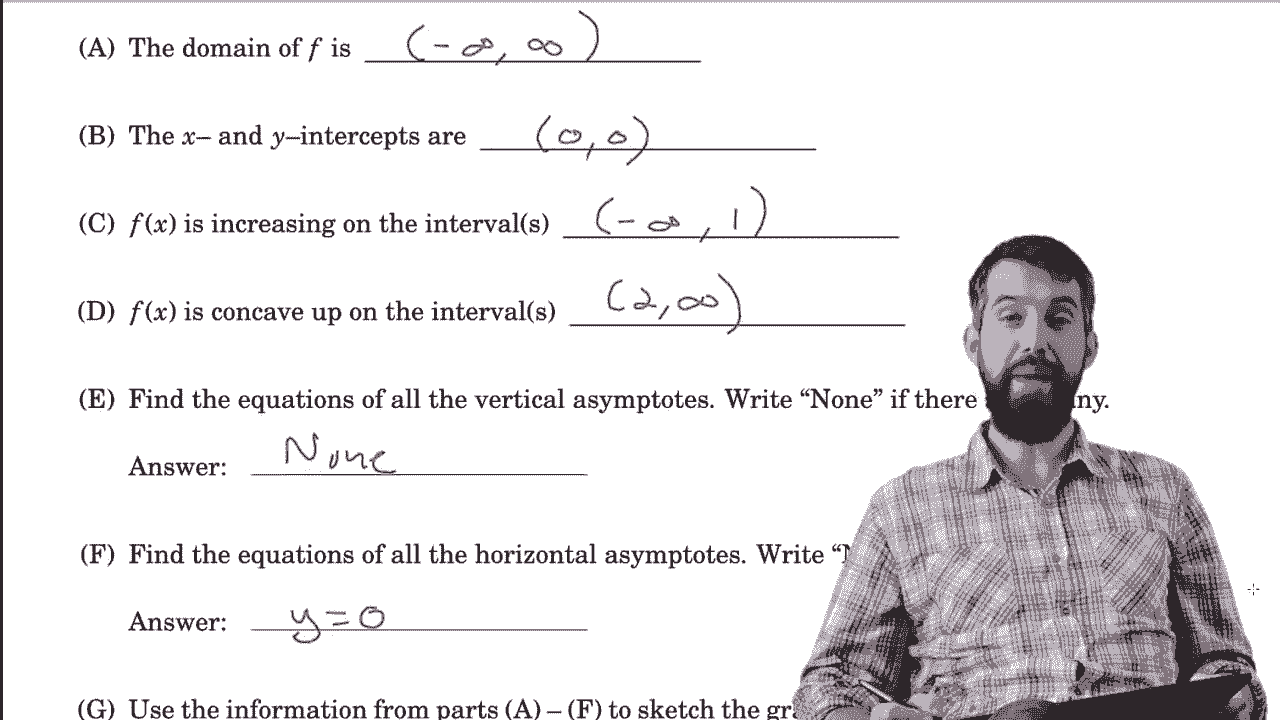 (A) The domain of f is (-∞, ∞)
(B) The x– and y–intercepts are (0,0)
(C) f(x) is increasing on the interval(s) (-∞, 1)
(D) f(x) is concave up on the interval(s) (2,∞)
(E) Find the equations of all the vertical asymptotes. Write “None” if there ny.
Answer: None
(F) Find the equations of all the horizontal asymptotes. Write “
Answer: y=0
(G) Use the information from parts (A) – (F) to sketch the gr